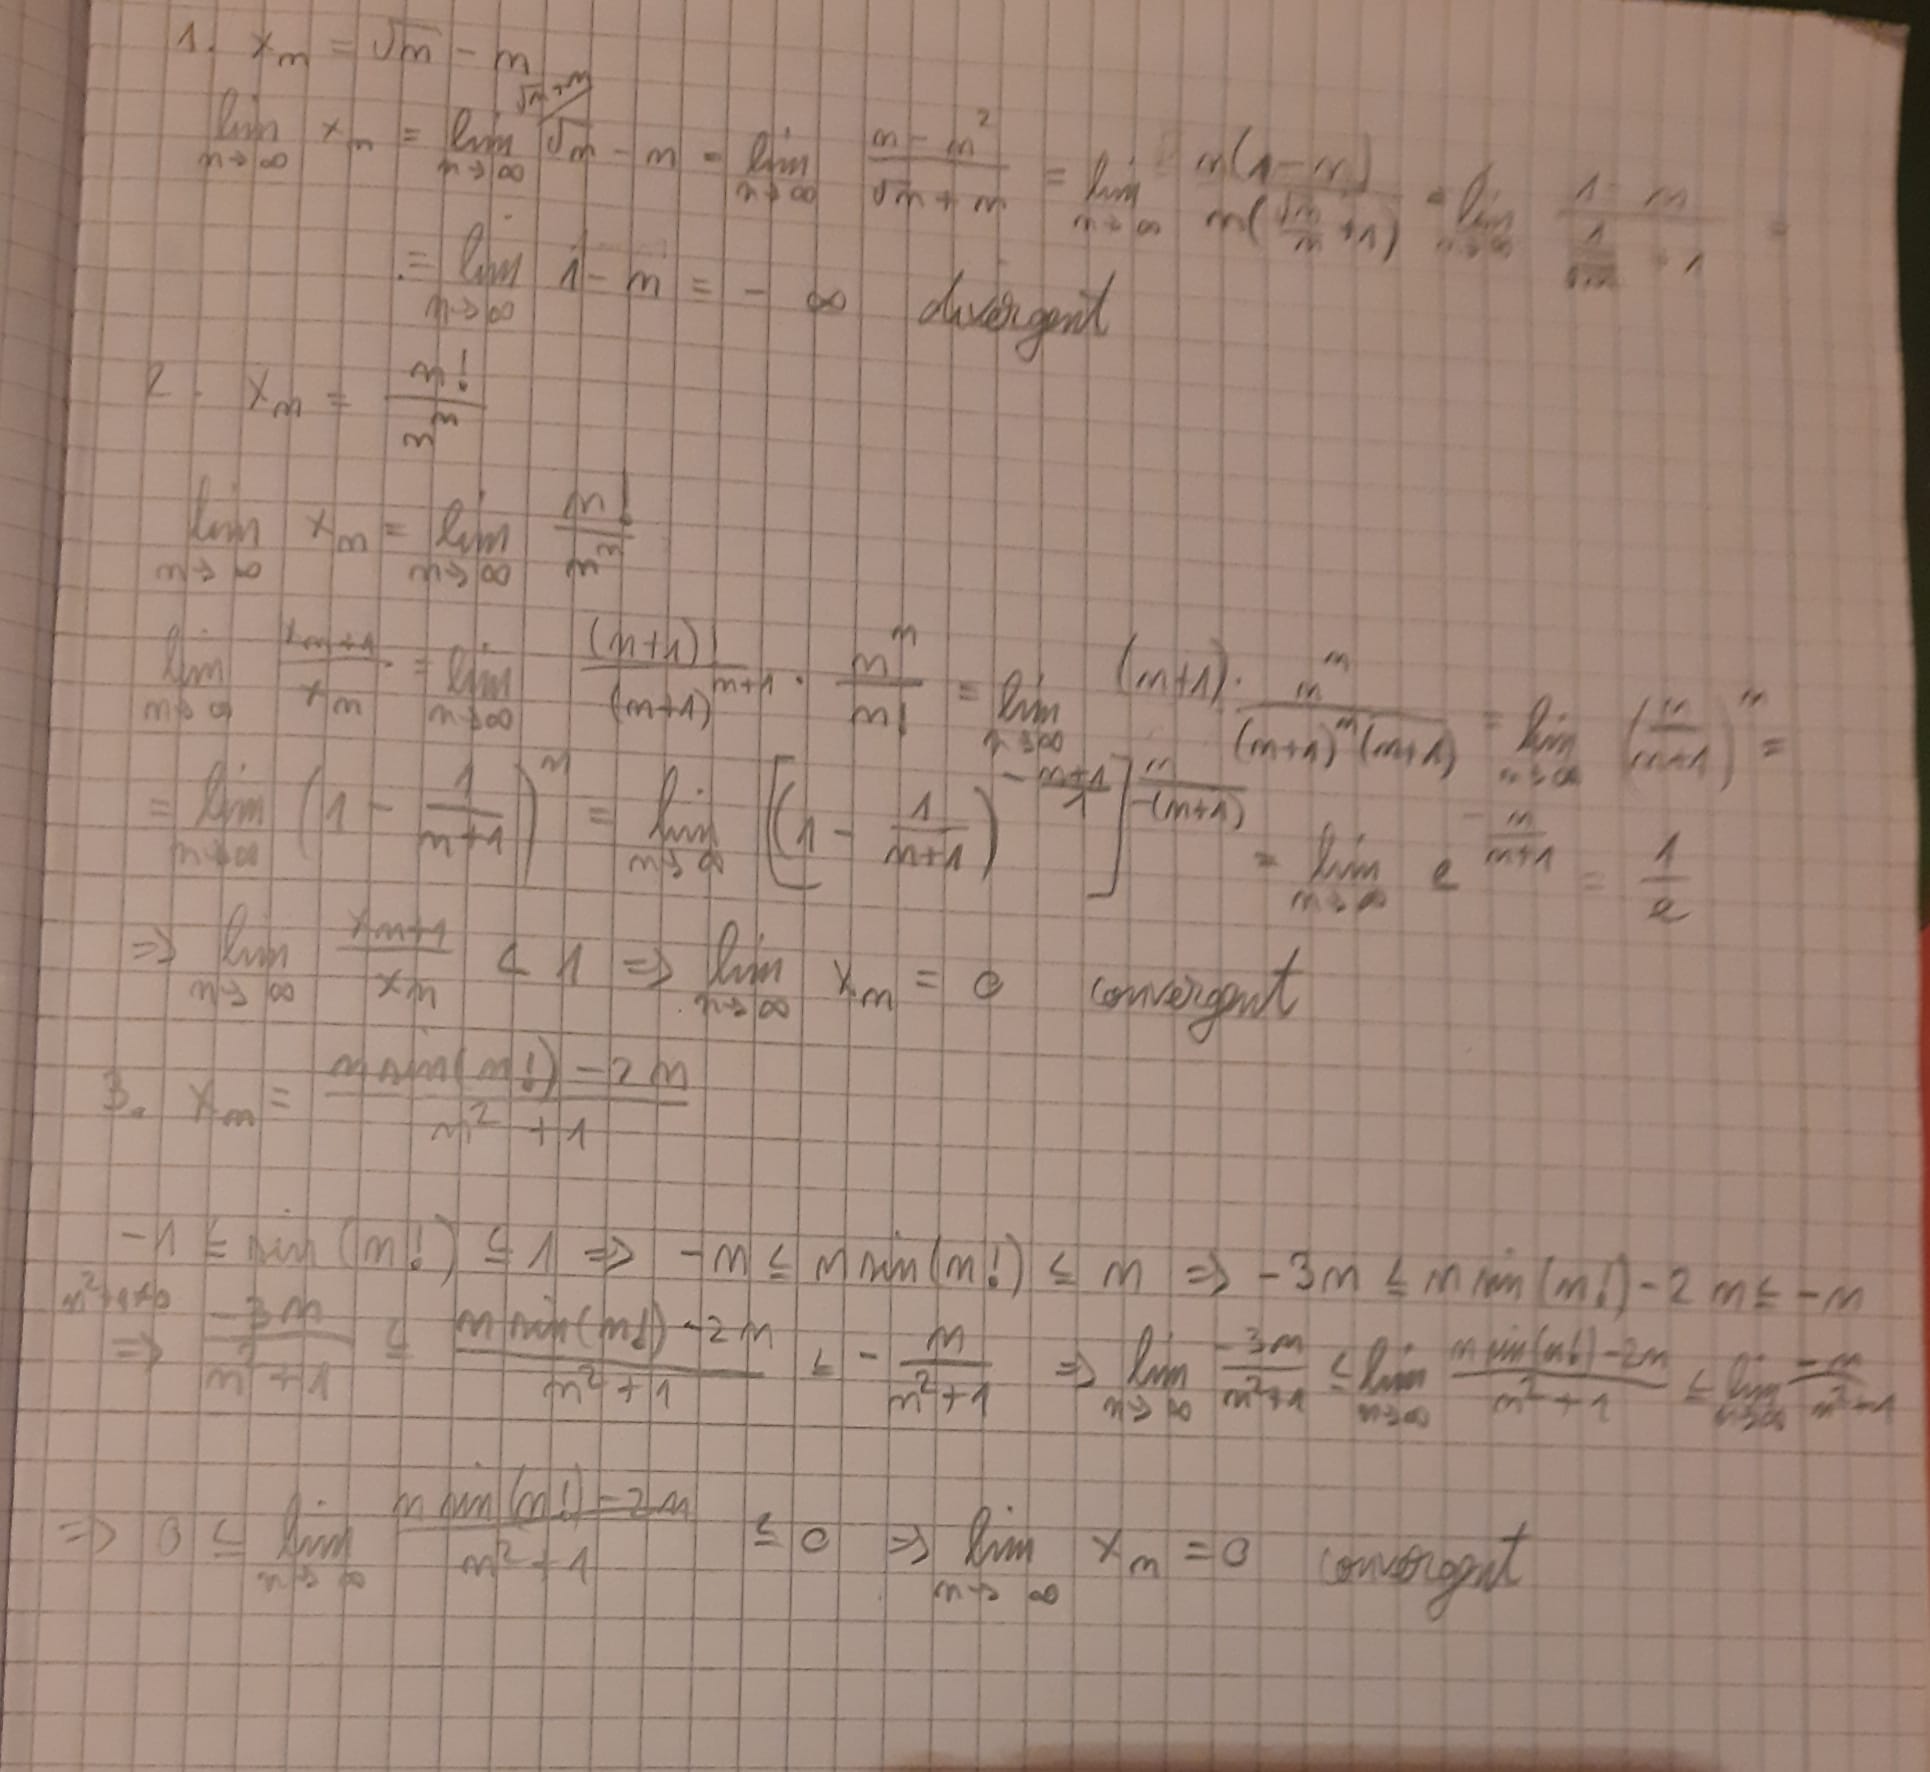 1. xₙ = √n - n
lim_{n→∞} xₙ = lim_{n→∞} ^{√n+n/} √n - n = lim_{n→∞} (n - n²)/(√n + n) = lim_{n→∞} n(1-n)/(n(√n/n + 1)) = lim_{n→∞} (1-n)/(1/√n + 1) =
= lim_{n→∞} 1 - n = - ∞ divergent
2. xₙ = n!/nⁿ
lim_{n→∞} xₙ = lim_{n→∞} n!/nⁿ
lim_{n→∞} xₙ₊₁/xₙ = lim_{n→∞} (n+1)!/(n+1)^{n+1} · nⁿ/n! = lim_{n→∞} (n+1) · nⁿ/((n+1)ⁿ(n+1)) = lim_{n→∞} (n/(n+1))ⁿ =
= lim_{n→∞} (1 - 1/(n+1))ⁿ = lim_{n→∞} [(1 - 1/(n+1))^{-(n+1)/1}]^{n/(-(n+1))} = lim_{n→∞} e^{-n/(n+1)} = 1/e
⇒ lim_{n→∞} xₙ₊₁/xₙ < 1 ⇒ lim_{n→∞} xₙ = 0 convergent
3. xₙ = (n sin(n!) - 2n)/(n² + 1)
-1 ≤ sin(n!) ≤ 1 ⇒ -n ≤ n sin(n!) ≤ n ⇒ -3n ≤ n sin(n!) - 2n ≤ -n
n²+1>0 ⇒ -3n/(n²+1) ≤ (n sin(n!) - 2n)/(n²+1) ≤ - n/(n²+1) ⇒ lim_{n→∞} -3n/(n²+1) ≤ lim_{n→∞} (n sin(n!) - 2n)/(n²+1) ≤ lim_{n→∞} -n/(n²+1)
⇒ 0 ≤ lim_{n→∞} (n sin(n!) - 2n)/(n²+1) ≤ 0 ⇒ lim_{n→∞} xₙ = 0 convergent